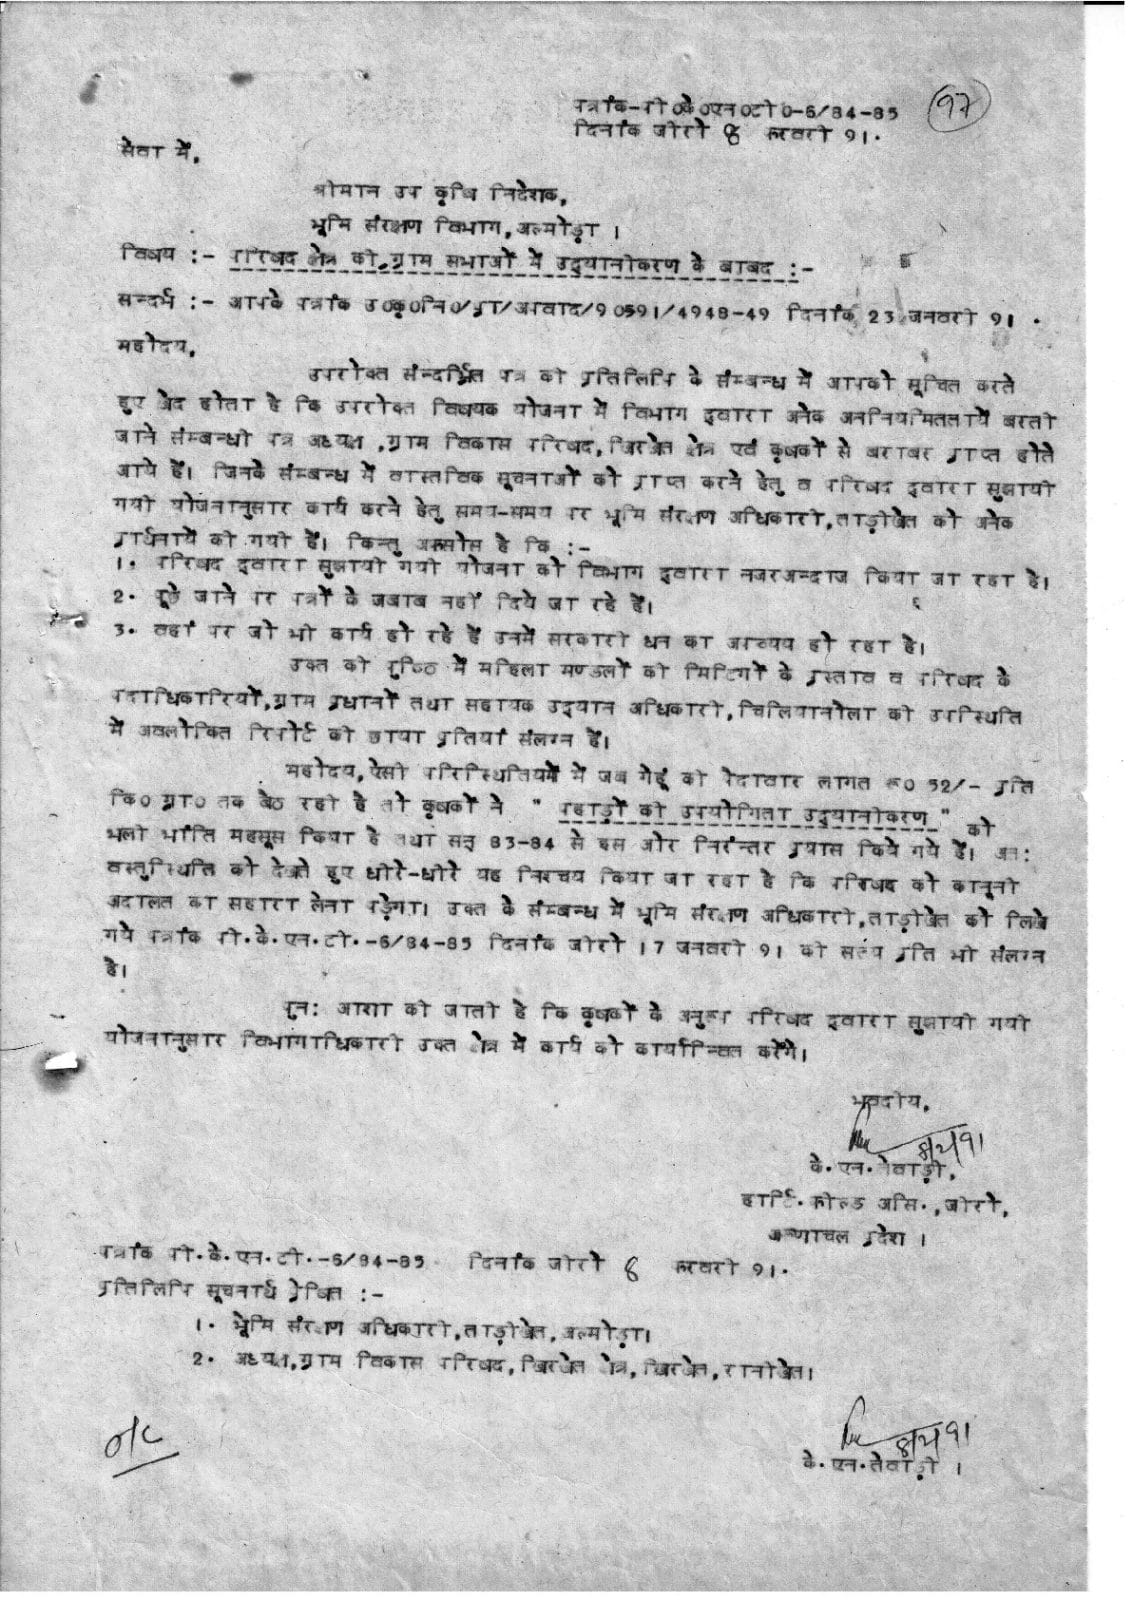 पत्रांक-पी0के0एन0टी0-6/84-85 (97)
दिनांक जीरो 8 फरवरी 91.
सेवा में,
श्रीमान उप कृषि निदेशक,
भूमि संरक्षण विभाग,अल्मोड़ा ।
विषय :- परिषद क्षेत्र की,ग्राम सभाओं में उद्यानीकरण के बाबद :-
सन्दर्भ :- आपके पत्रांक उ0कृ0नि0/प्रा/अपवाद/90591/4948-49 दिनांक 23 जनवरी 91 .
महोदय,
उपरोक्त संन्दर्भित पत्र की प्रतिलिपि के संम्बन्ध में आपको सूचित करते
हुए खेद होता है कि उपरोक्त विषयक योजना में विभाग द्वारा अनेक अननियमितलायें बरती
जाने संम्बन्धी पत्र अध्यक्ष ,ग्राम विकास परिषद,खिरखेत क्षेत्र एवं कृषकों से बराबर प्राप्त होते
आये हैं। जिनके संम्बन्ध में वास्तविक सूचनाओं को प्राप्त करने हेतु व परिषद द्वारा सुझायी
गयी योजनानुसार कार्य करने हेतु समय-समय पर भूमि संरक्षण अधिकारी,ताड़ीखेत को अनेक
प्रार्थनायें की गयी हैं। किन्तु अफसोस है कि :-
1. परिषद द्वारा सुझायी गयी योजना को विभाग द्वारा नजरअन्दाज किया जा रहा है।
2. पूछे जाने पर पत्रों के जबाब नहीं दिये जा रहे हैं।
3. वहां पर जो भी कार्य हो रहे हैं उनमें सरकारी धन का अपव्यय हो रहा है।
उक्त की पुष्ठि में महिला मण्डलों की मिटिंगों के प्रस्ताव व परिषद के
पदाधिकारियों,ग्राम प्रधानों तथा सहायक उद्यान अधिकारी,चिलियानौला की उपस्थिति
में अवलोकित रिपोर्ट की छाया प्रतियां संलग्न हैं।
महोदय,ऐसी परिस्थितियमें में जब गेहूं की पैदावार लागत रू0 52/- प्रति
कि0 ग्रा0 तक बैठ रही है तो कृषकों ने " पहाड़ों की उपयोगिता उद्यानीकरण " को
भली भांति महसूस किया है तथा सन् 83-84 से इस ओर निरंन्तर प्रयास किये गये हैं। अत:
वस्तुस्थिति को देखते हुए धीरे-धीरे यह निश्चय किया जा रहा है कि परिषद को कानूनी
अदालत का सहारा लेना पड़ेगा। उक्त के संम्बन्ध में भूमि संरक्षण अधिकारी,ताड़ीखेत को लिखे
गये पत्रांक पी.के.एन.टी.-6/84-85 दिनांक जीरो 17 जनवरी 91 की सत्य प्रति भी संलग्न
है।
पुन: आशा की जाती है कि कृषकों के अनुरूप परिषद द्वारा सुझायी गयी
योजनानुसार विभागाधिकारी उक्त क्षेत्र में कार्य को कार्यान्वित करेंगे।
भवदीय,
8/2/91
के.एन.तेवाड़ी,
हार्टि.फील्ड असि.,जीरो,
अरूणाचल प्रदेश ।
पत्रांक पी.के.एन.टी.-6/84-85 दिनांक जीरो 8 फरवरी 91.
प्रतिलिपि सूचनार्थ प्रेषित :-
1. भूमि संरक्षण अधिकारी,ताड़ीखेत,अल्मोड़ा।
2. अध्यक्ष,ग्राम विकास परिषद,खिरखेत क्षेत्र,खिरखेत,रानीखेत।
o/c
8/2/91
के.एन.तेवाड़ी ।